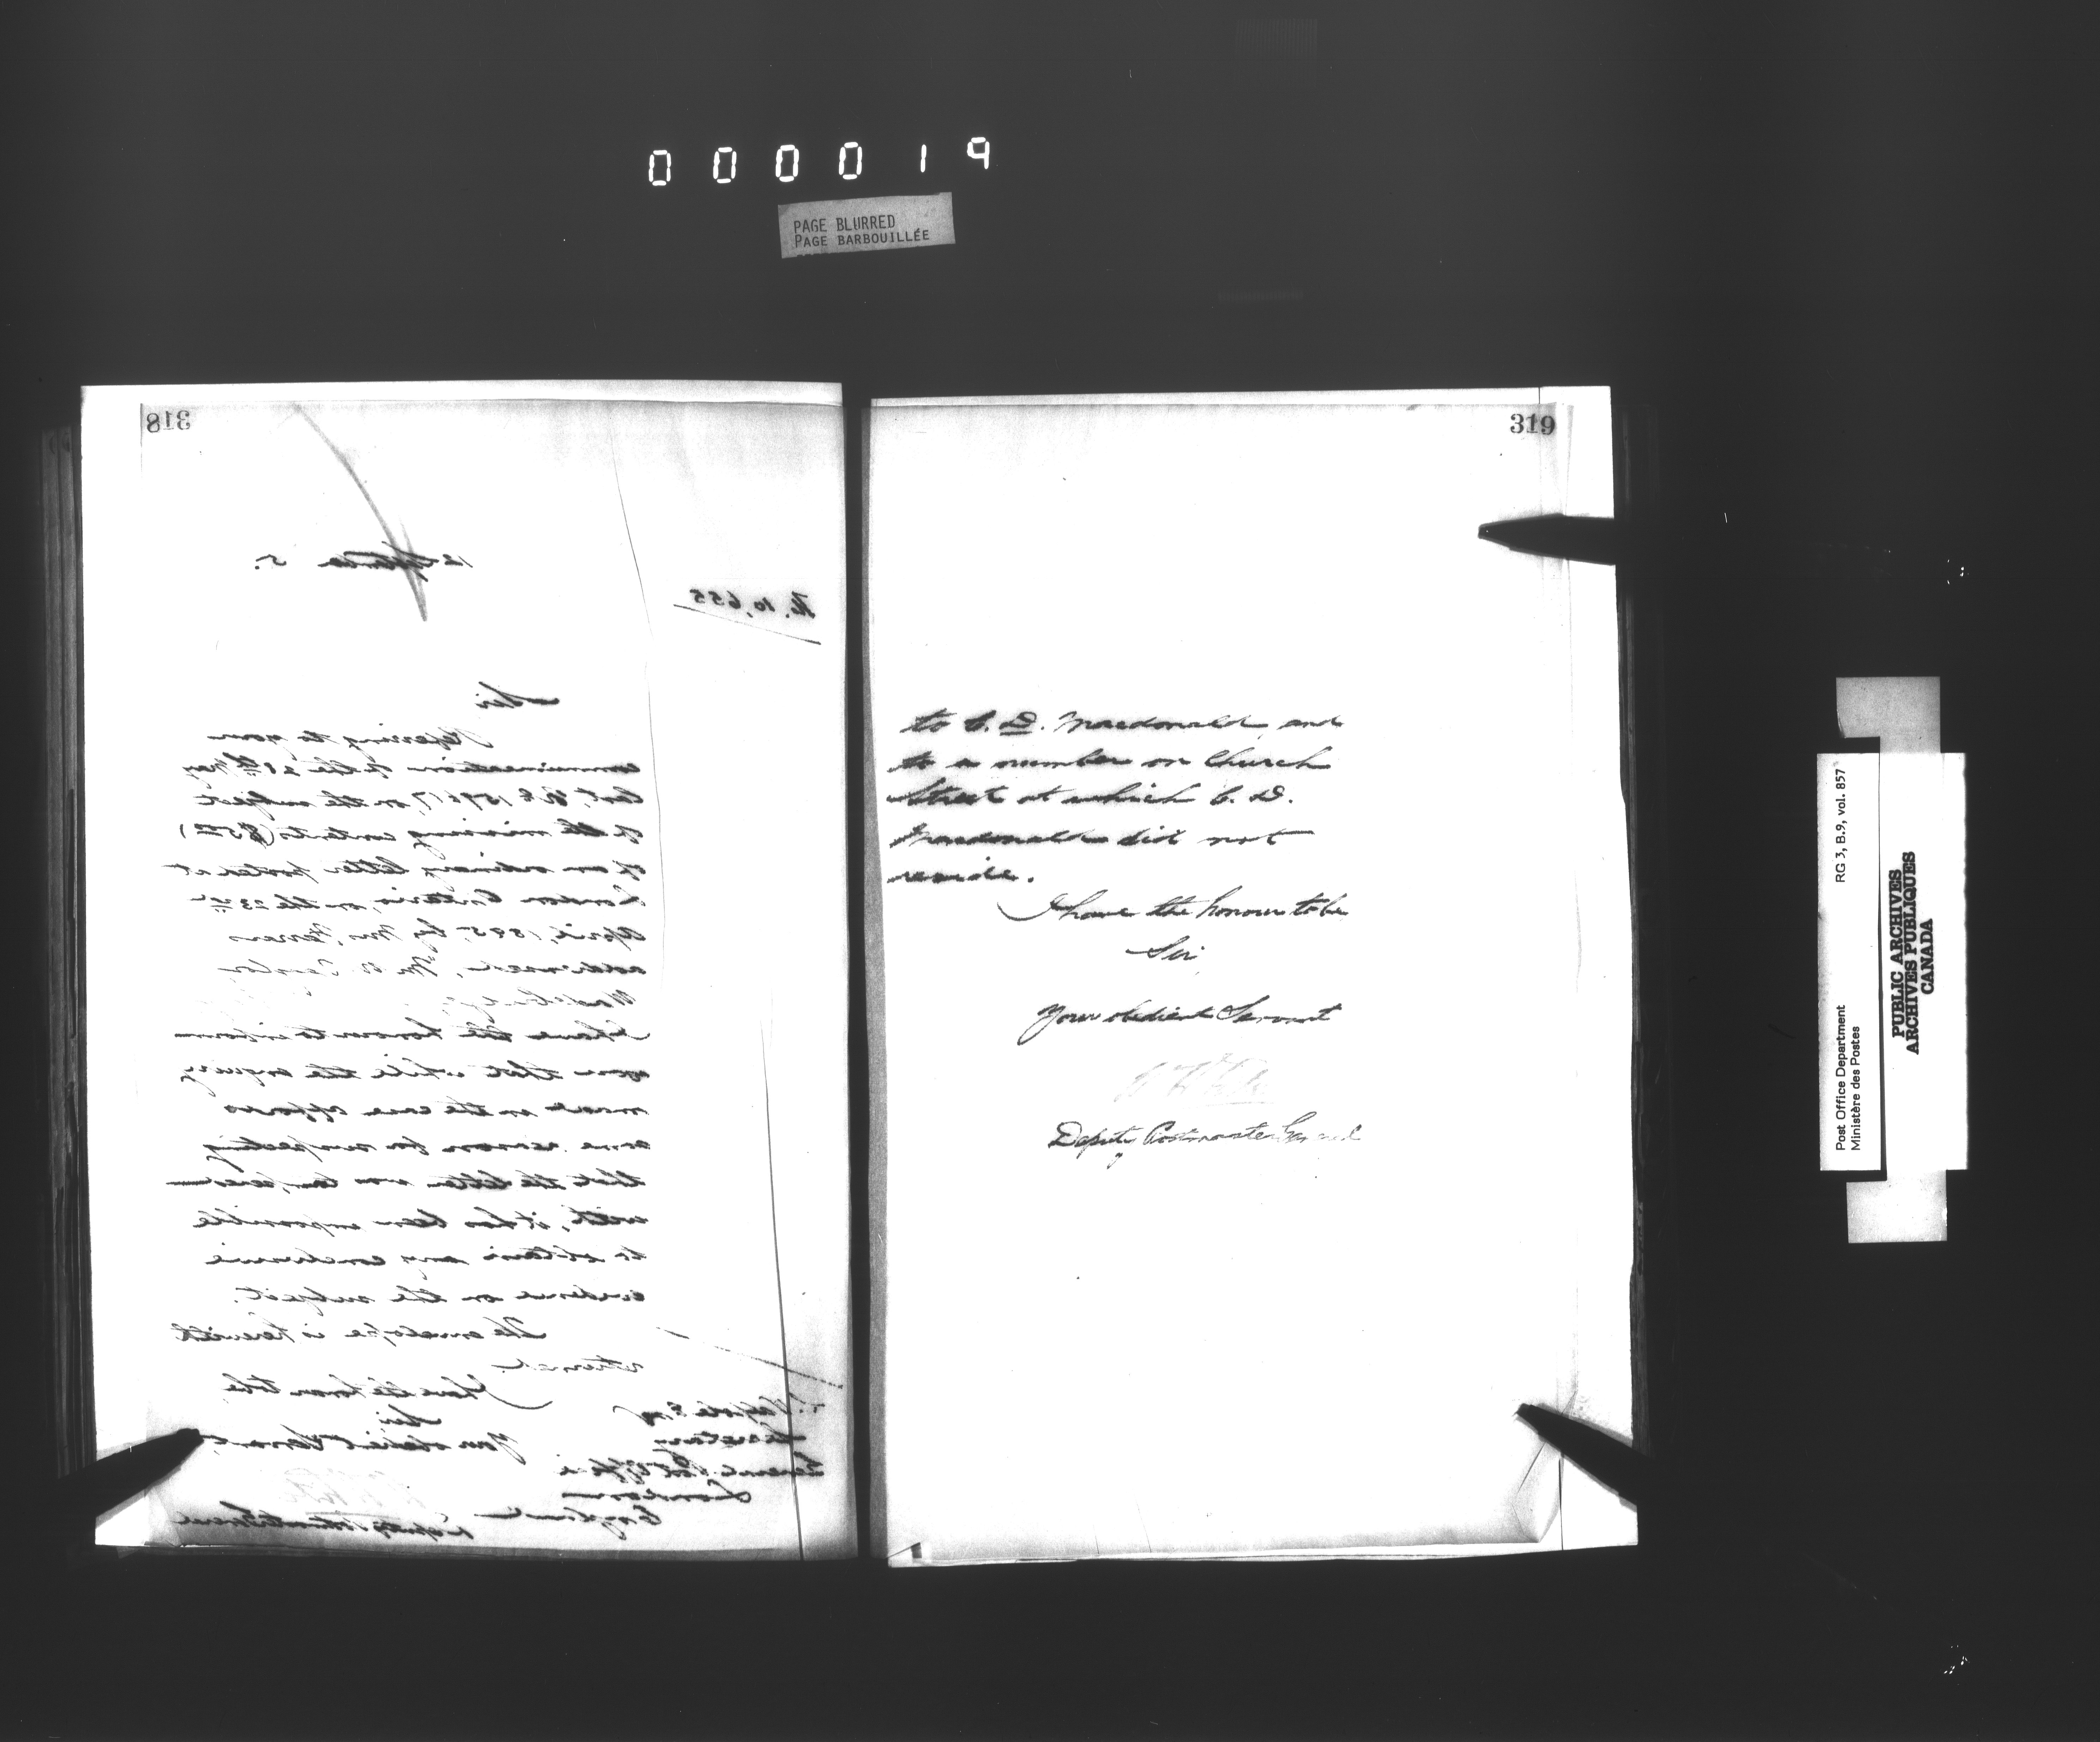 000019
PAGE BLURRED
PAGE BARBOUILLÉE
318
12 September 5.
No. 10,655
Sir
Referring to your
communication of the 28th May
last, on the subject
of the missing contents
of an ordinary letter posted at
London Ontario, on the 23rd
April, 1895, by Mr.
addressed,
I have the honor to inform
you that while the enquiry
made in the case affords
some reason for suspecting
that the letter was tampered
with, it has been impossible
to obtain any conclusive
evidence on the subject.
The envelope is herewith
returned.
I have the honor to be
Sir
Your obedient Servant,
Deputy Postmaster General
Esq
Secretary
General Post Office
London
England
319
to C. D. Macdonald, and
to a number on Church
Street at which C. D.
Macdonald did not
reside.
I have the honour to be
Sir
Your obedient Servant
Deputy Postmaster General
Post Office Department
Ministère des Postes
RG 3, B.9, vol. 857
PUBLIC ARCHIVES
ARCHIVES PUBLIQUES
CANADA